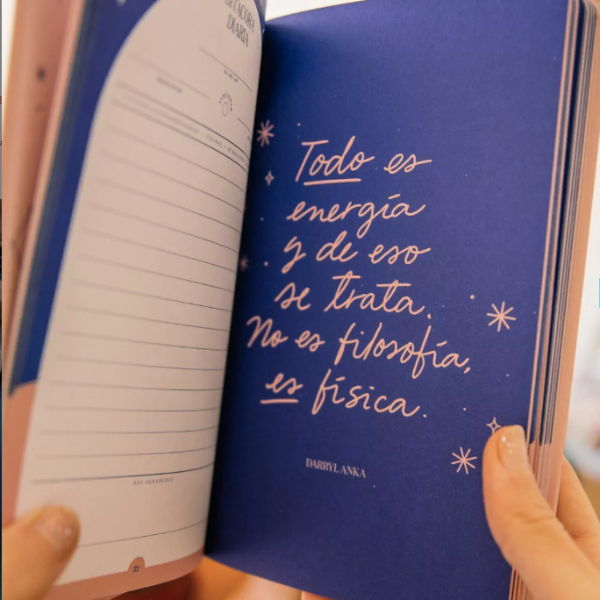 DIARIA
Todo es
energía
y de eso
se trata.
No es filosofía,
es física.
DARRYL ANKA